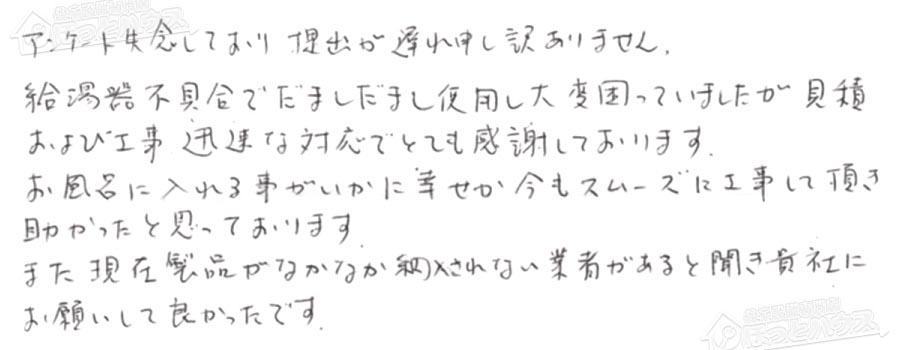 アンケート失念しており提出が遅れ申し訳ありません。
給湯器不具合でだましだまし使用し大変困っていましたが見積
および工事迅速な対応でとても感謝しております。
お風呂に入れる事がいかに幸せか今もスムーズに工事して頂き
助かったと思っております。
また現在製品がなかなか納入されない業者があると聞き貴社に
お願いして良かったです。
ほっとハウス
ほっとハウス